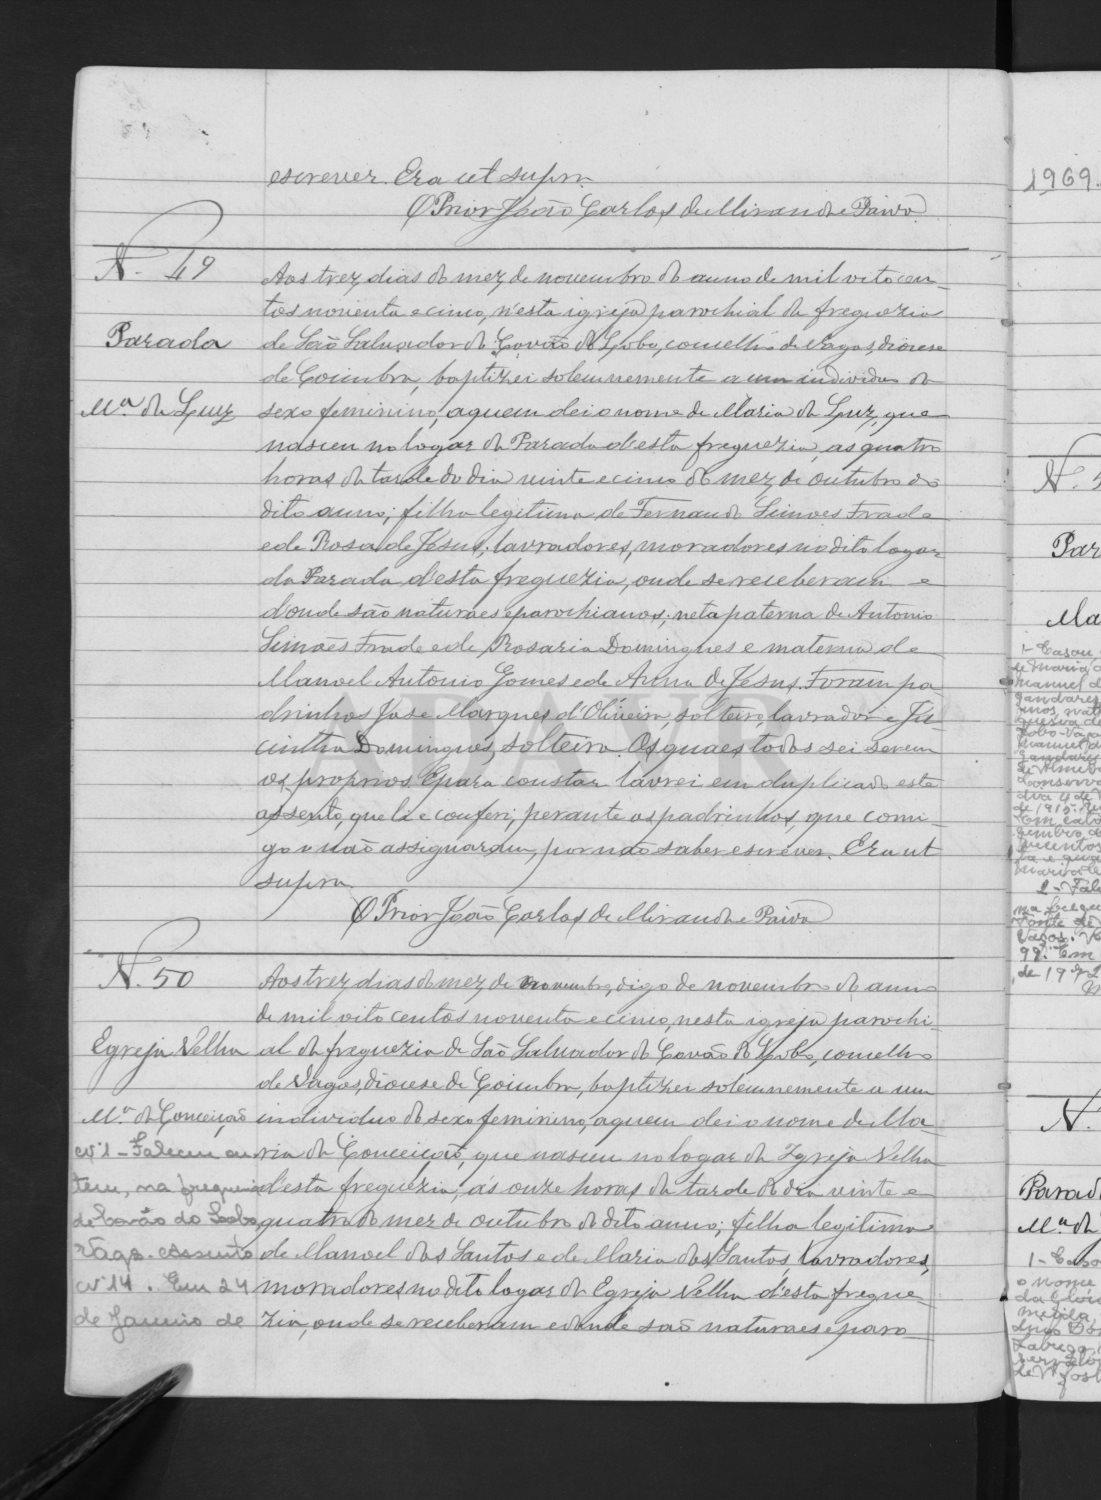 escrever. Era ut supra.
O Prior João Carlos de Miranda e Paiva
N. 49
Parada
Mª. da Luz
Aos trez dias do mez de novembro do anno de mil oito cen-
tos noventa e cinco, n'esta igreja parochial da freguezia
de São Salvador do Covão do Lobo, concelho de Vagos, diocese
de Coimbra, baptizei solemnemente a um individuo do
sexo feminino, a quem dei o nome de Maria da Luz, que
nasceu no logar da Parada d'esta freguezia, as quatro
horas da tarde do dia vinte e cinco do mez de outubro do
dito anno; filha legitima de Fernando Simoes Frade
e de Rosa de Jesus, lavradores, moradores no dito logar
da Parada d'esta freguezia, onde se receberam e
d'onde são naturaes e parochianos; neta paterna de Antonio
Simoes Frade e de Rosaria Domingues e materna de
Manoel Antonio Gomes e de Anna de Jesus. Foram pa-
drinhos José Marques d'Oliveira, solteiro, lavrador e Ja-
cintha Domingues, solteira. Os quaes todos sei serem
os proprios. E para constar lavrei em duplicado este
assento, que li e conferi, perante os padrinhos, que comi-
go não assignaram, por não saber escrever. Era ut
supra.
O Prior João Carlos de Miranda e Paiva
N. 50
Egreja Velha
Mª. da Conceição
Nº 1 - Faleceu on-
tem, na freguesia
de Covão do Lobo,
Vagos. Assento
Nº 14. Em 24
de Janeiro de
Aos trez dias do mez de novembro, digo de novembro do anno
de mil oito centos noventa e cinco, nesta igreja parochi-
al da freguezia de São Salvador do Covão do Lobo, concelho
de Vagos, diocese de Coimbra, baptizei solemnemente a um
individuo do sexo feminino, a quem dei o nome de Ma-
ria da Conceição, que nasceu no logar da Igreja Velha
d'esta freguezia, ás onze horas da tarde do dia vinte e
quatro do mez de outubro do dito anno; filha legitima
de Manoel dos Santos e de Maria dos Santos, lavradores,
moradores no dito logar da Egreja Velha d'esta fregue-
zia, onde se receberam e donde são naturaes e paro-
ADAVR
1969.
N. 5
Par
Ma
1 - Casou
de Maria
Manuel d
Lobo - Va
de 1915.
2 - Fale
na fregue
Fonte de
Vagos.
Em
de 19
N.
Parad
Mª. da
1 - Caso
o nome
da Glóri